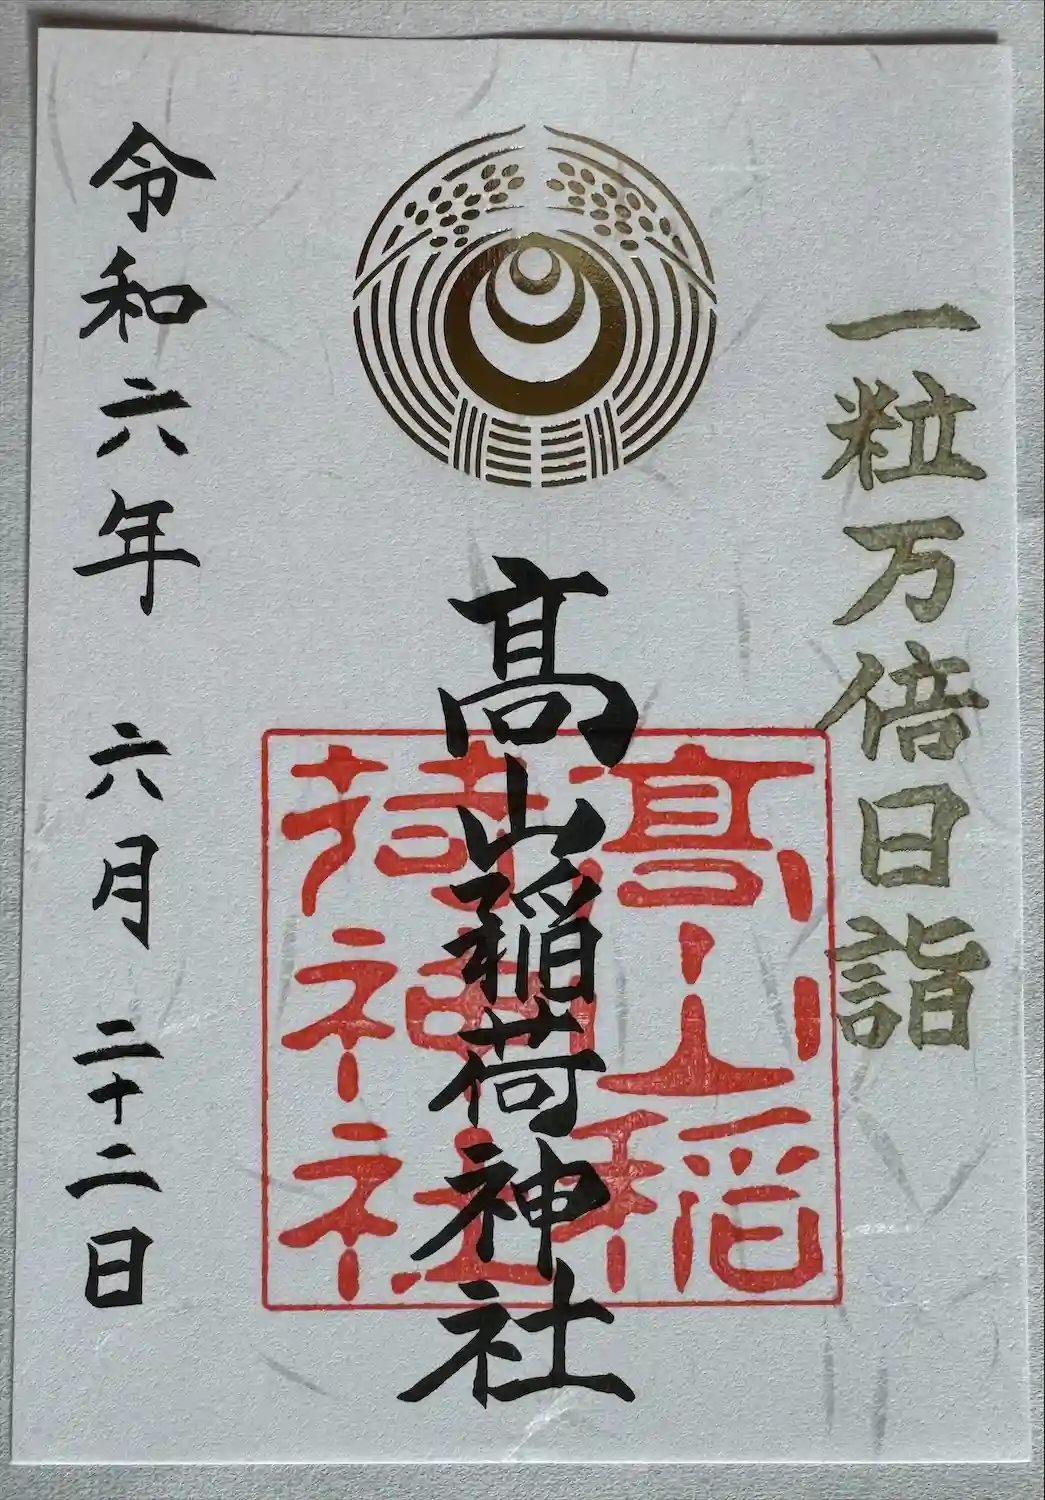 一粒万倍日詣
髙山稲荷神社
髙山稲
荷神社
令和六年 六月二十二日